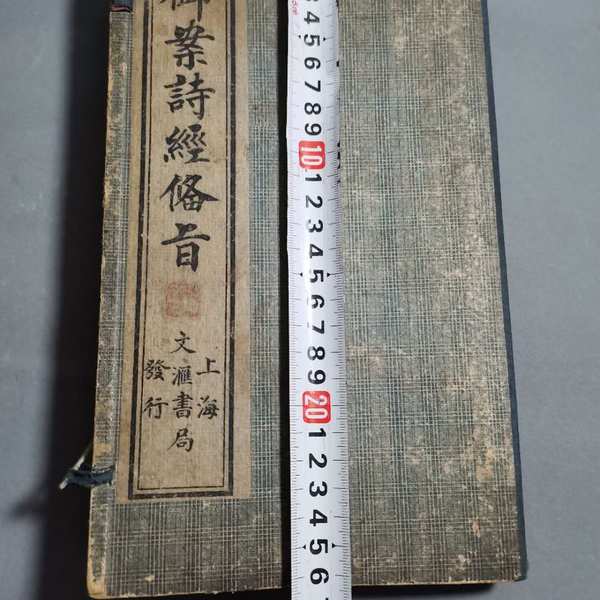 御案詩經備旨
上海
文滙書局
發行
3 4 5 6 7 8 9 10 1 2 3 4 5 6 7 8 9 20 1 2 3 4 5 6